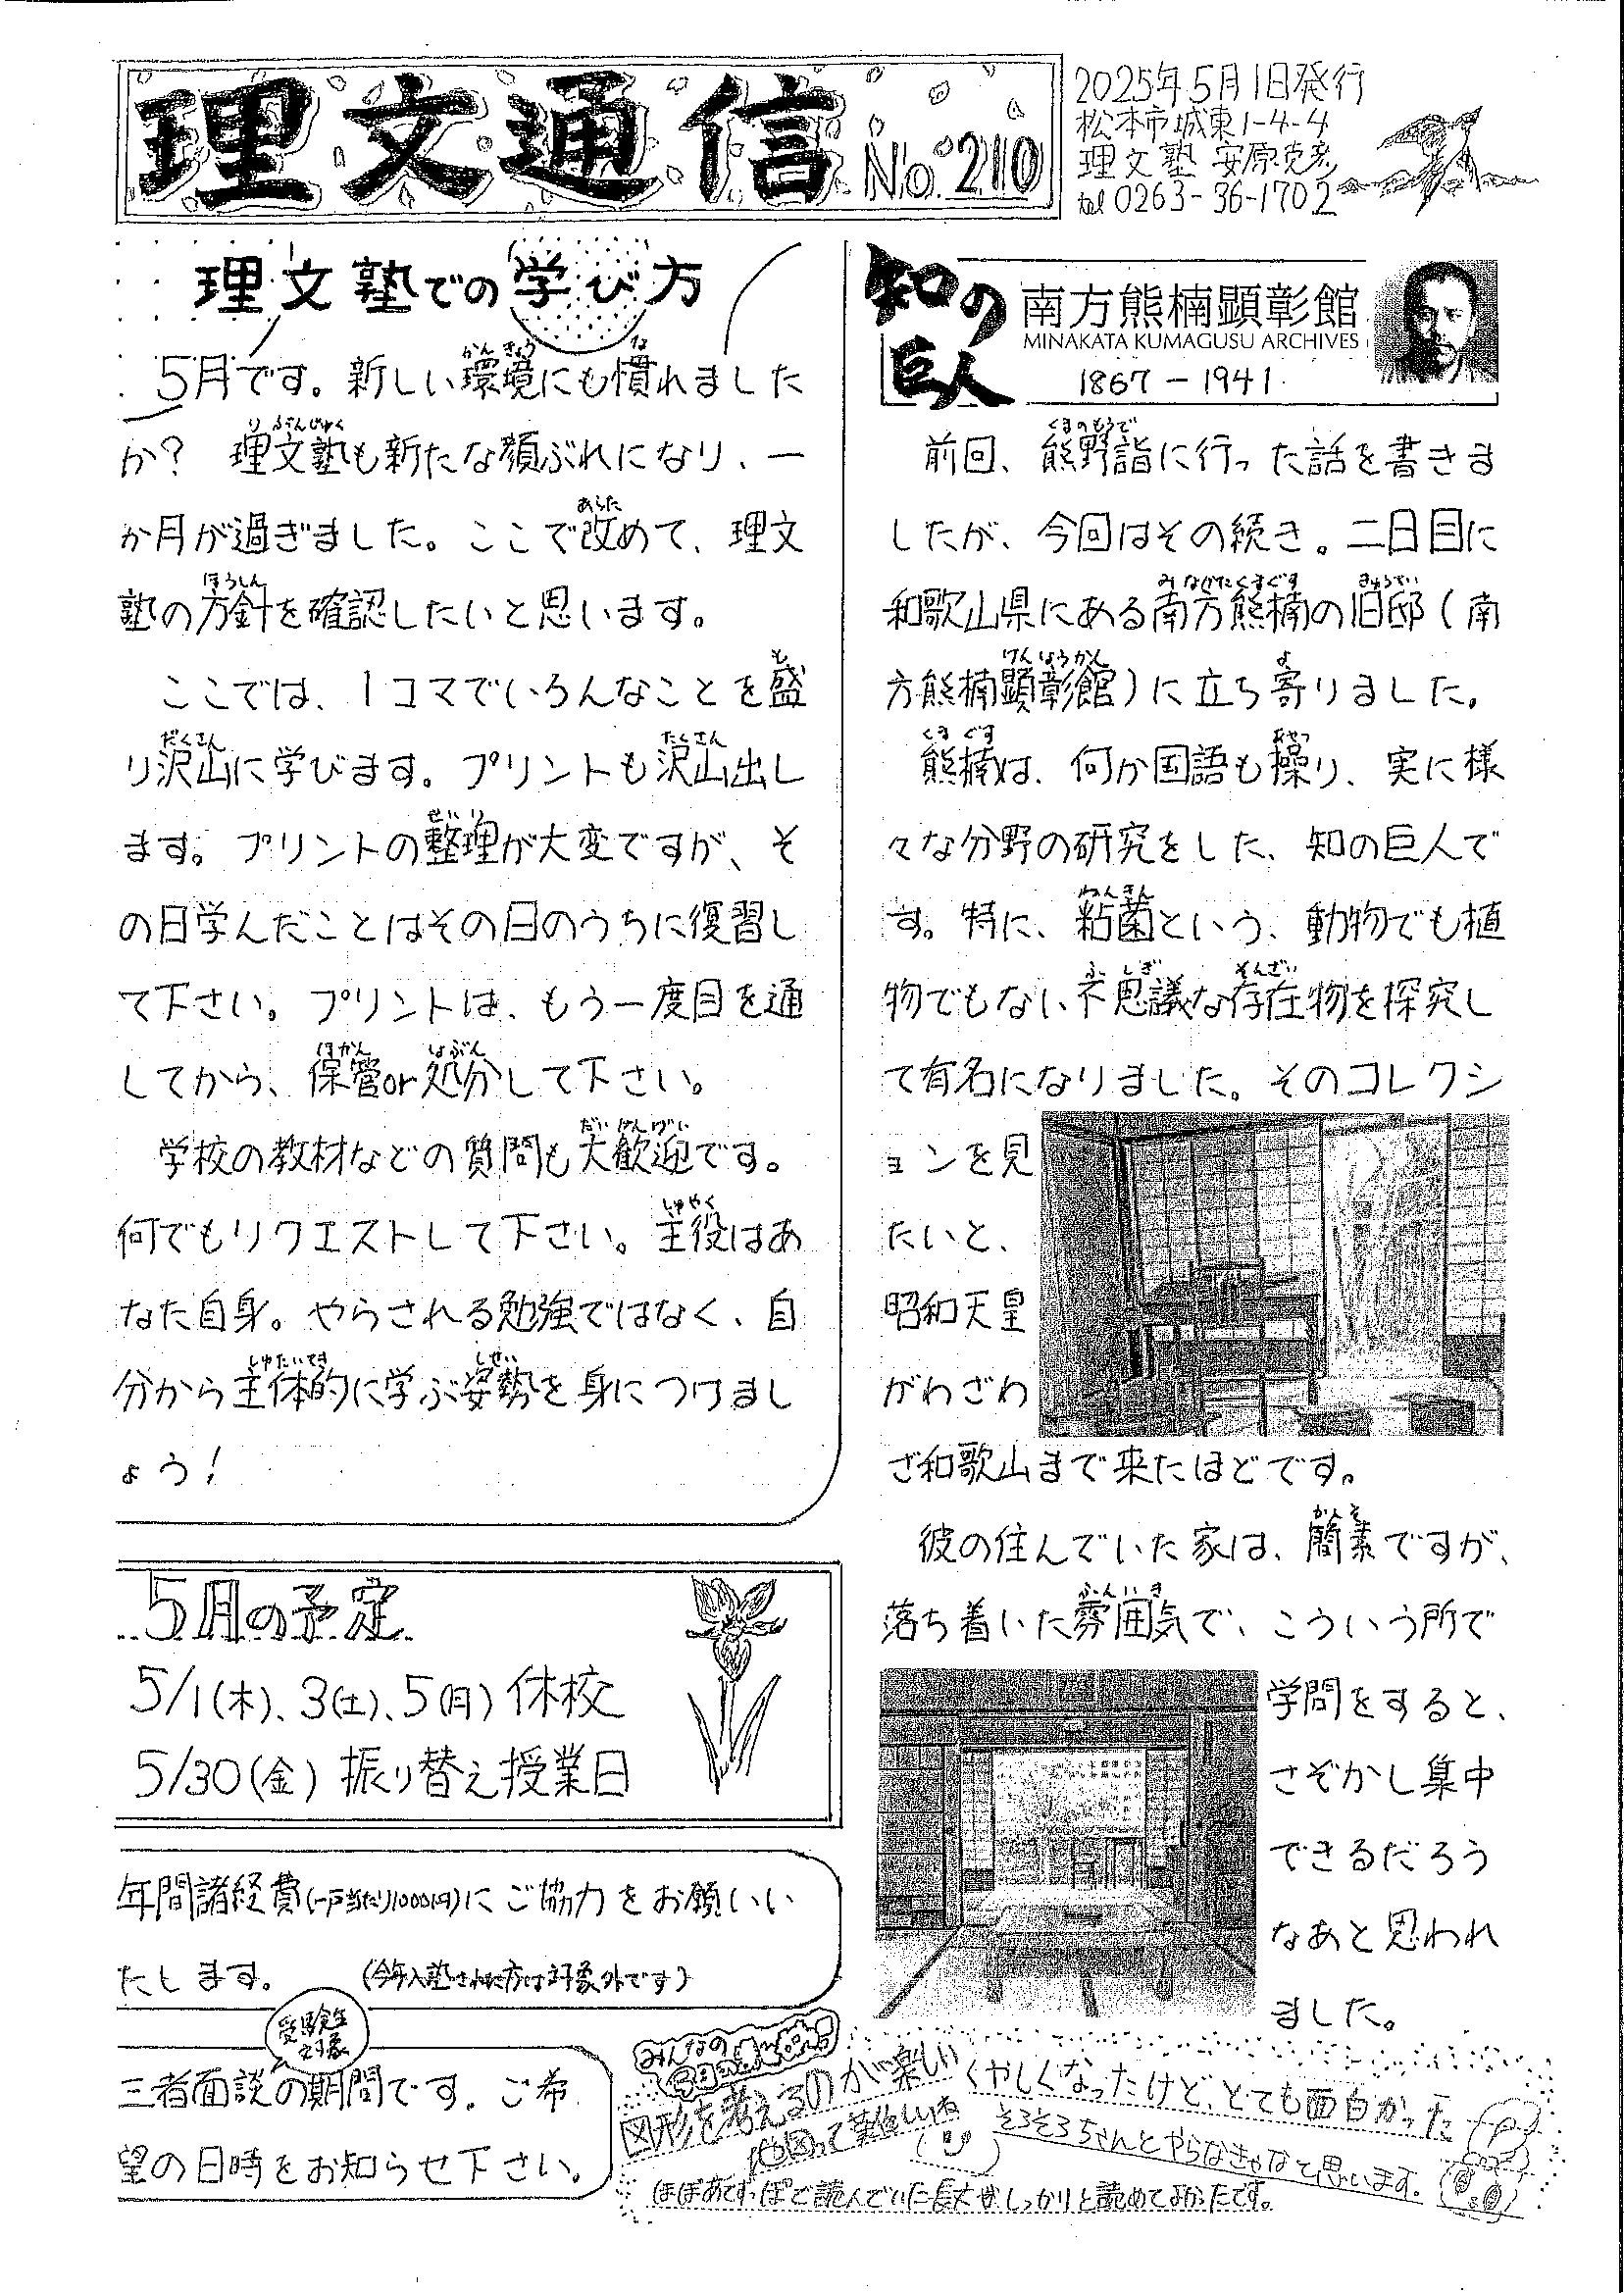 理文通信 No.210
2025年5月1日発行
松本市城東1-4-4
理文塾 安原克彦
tel 0263-36-1702
理文塾での学び方
5月です。新しい環境にも慣れました
か? 理文塾も新たな顔ぶれになり、一
か月が過ぎました。ここで改めて、理文
塾の方針を確認したいと思います。
ここでは、1コマでいろんなことを盛
り沢山に学びます。プリントも沢山出し
ます。プリントの整理が大変ですが、そ
の日学んだことはその日のうちに復習し
て下さい。プリントは、もう一度目を通
してから、保管or処分して下さい。
学校の教材などの質問も大歓迎です。
何でもリクエストして下さい。主役はあ
なた自身。やらされる勉強ではなく、自
分から主体的に学ぶ姿勢を身につけまし
ょう!
5月の予定
5/1(木)、3(土)、5(月) 休校
5/30(金) 振り替え授業日
年間諸経費(一戸当たり1000円)にご協力をお願いい
たします。 (今年入塾された方は対象外です)
受験生
対象
三者面談の期間です。ご希
望の日時をお知らせ下さい。
知の
巨人
南方熊楠顕彰館
MINAKATA KUMAGUSU ARCHIVES
1867-1941
前回、熊野詣に行った話を書きま
したが、今回はその続き。二日目に
和歌山県にある南方熊楠の旧邸(南
方熊楠顕彰館)に立ち寄りました。
熊楠は、何か国語も操り、実に様
々な分野の研究をした、知の巨人で
す。特に、粘菌という、動物でも植
物でもない不思議な存在物を探究し
て有名になりました。そのコレクシ
ョンを見
たいと、
昭和天皇
がわざわ
ざ和歌山まで来たほどです。
彼の住んでいた家は、簡素ですが、
落ち着いた雰囲気で、こういう所で
学問をすると、
さぞかし集中
できるだろう
なあと思われ
ました。
みんなの
図形を考えるのが楽しい
地図って美しいね
くやしくなったけど、とても面白かった
そろそろちゃんとやらなきゃなと思います。
ほぼあてずっぽで読んでいた長文がしっかりと読めてよかったです。